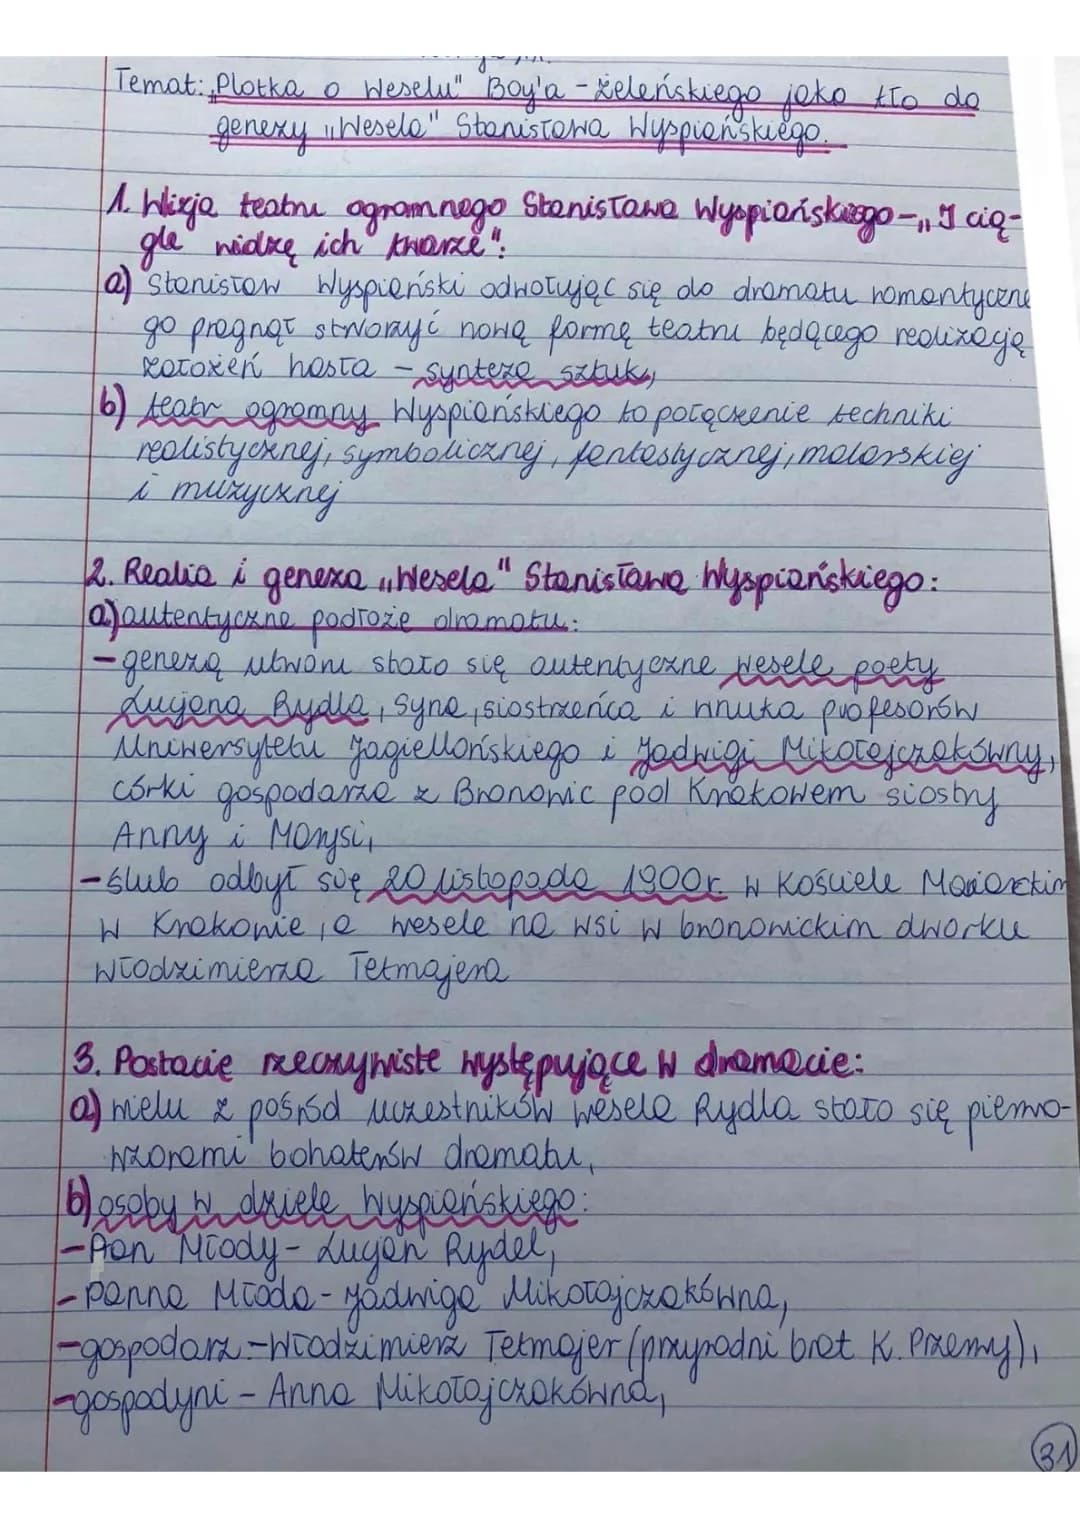 Temat: „Plotka o Weselu" Boy'a - Żeleńskiego jako tło do
genezy „Wesela" Stanisława Wyspiańskiego.
1. Wizja teatru ogromnego Stanisława Wyspiańskiego - „I cią-
gle widzę ich twarze":
a) Stanisław Wyspiański odwołując się do dramatu romantyczne
go pragnął stworzyć nową formę teatru będącego realizacją
założeń hasła - syntezę sztuk,
b) teatr ogromny Wyspiańskiego to połączenie techniki
realistycznej, symbolicznej, fantastycznej, malarskiej
i muzycznej
2. Realia i geneza „Wesela" Stanisława Wyspiańskiego:
a) autentyczne podłoże dramatu:
- genezą utworu stało się autentyczne wesele poety
Lucjana Rydla, syna, siostrzeńca i wnuka profesorów
Uniwersytetu Jagiellońskiego i Jadwigi Mikołajczakówny,
córki gospodarza z Bronowic pod Krakowem siostry
Anny i Marysi,
- ślub odbył się 20 listopada 1900r. w Kościele Mariackim
w Krakowie, a wesele na wsi w bronowickim dworku
Włodzimierza Tetmajera
3. Postacie rzeczywiste występujące w dramacie:
a) wielu z pośród uczestników wesela Rydla stało się pierwo-
wzorami bohaterów dramatu,
b) osoby w dziele Wyspiańskiego:
- Pan Młody - Lucjan Rydel,
- Panna Młoda - Jadwiga Mikołajczakówna,
- gospodarz - Włodzimierz Tetmajer (przyrodni brat K. Przerwy),
- gospodyni - Anna Mikołajczakówna,
31